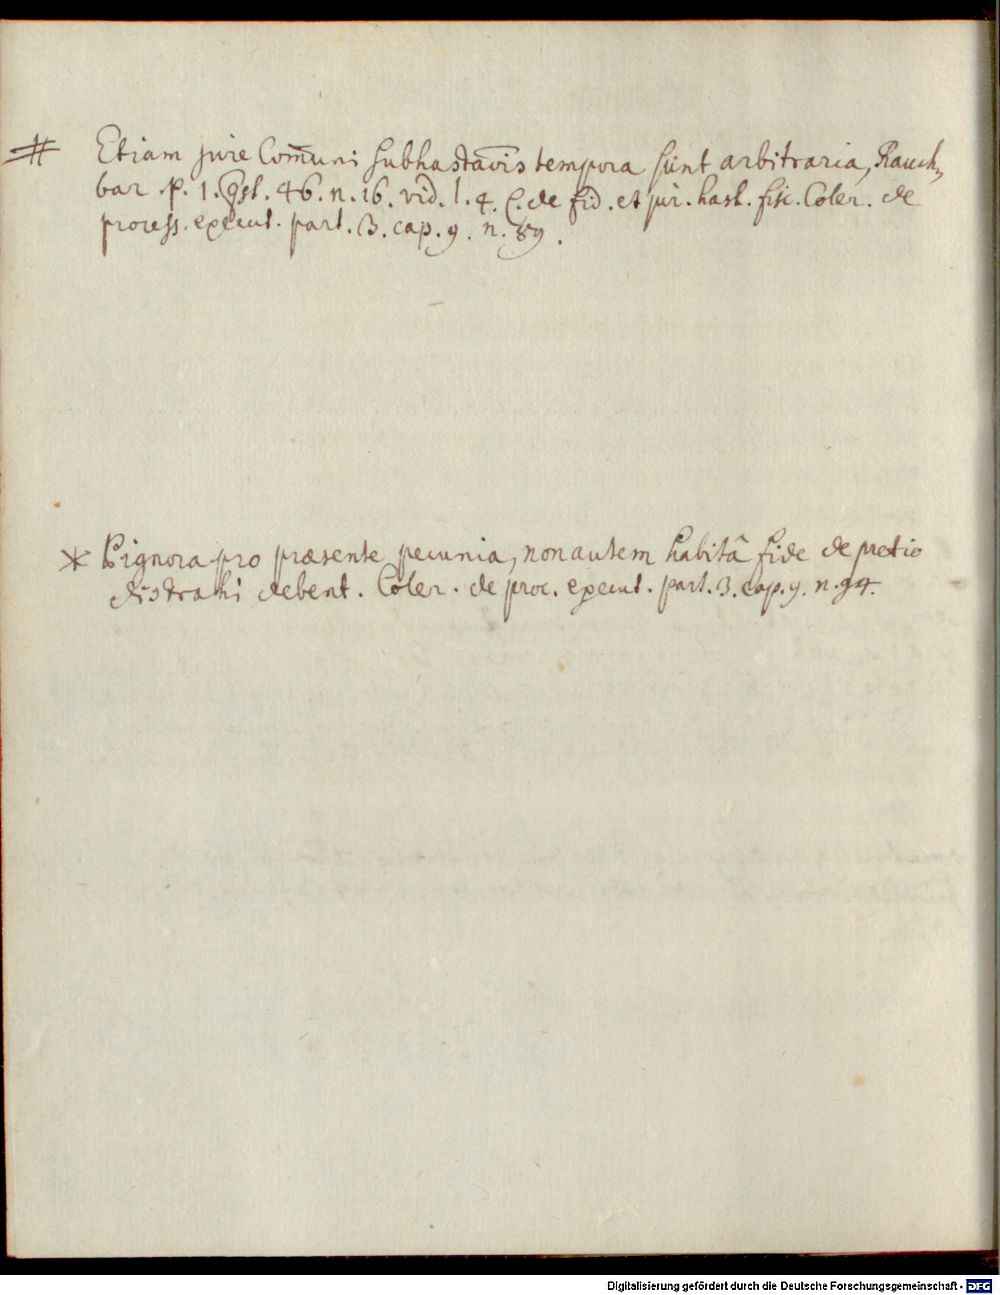 # Etiam jure Com̄uni subhastaōis tempora sunt arbitraria, Rauch-
bar p. 1. qst. 46. n. 16. vid. l. 4. C. de fid. et jur. hast. fisc. Coler. de
process. execut. part. 3. cap. 9. n. 89.
* Pignora pro præsente pecunia, non autem habitâ fide de pretio
distrahi debent. Coler. de proc. execut. part. 3. cap. 9. n. 94.
Digitalisierung gefördert durch die Deutsche Forschungsgemeinschaft - DFG